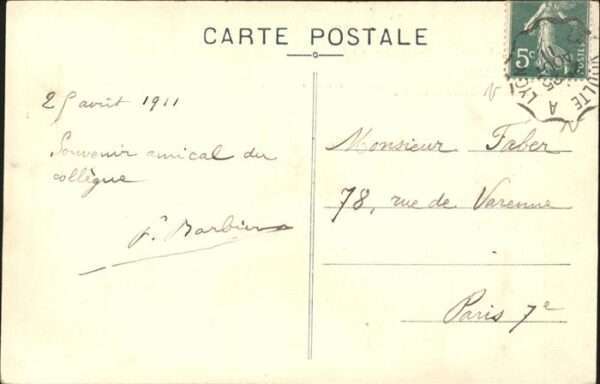 CARTE POSTALE
5c
POSTES
25 avril 1911
Souvenir amical du
collègue
F. Barbier
Monsieur Faber
78, rue de Varenne
Paris 7e